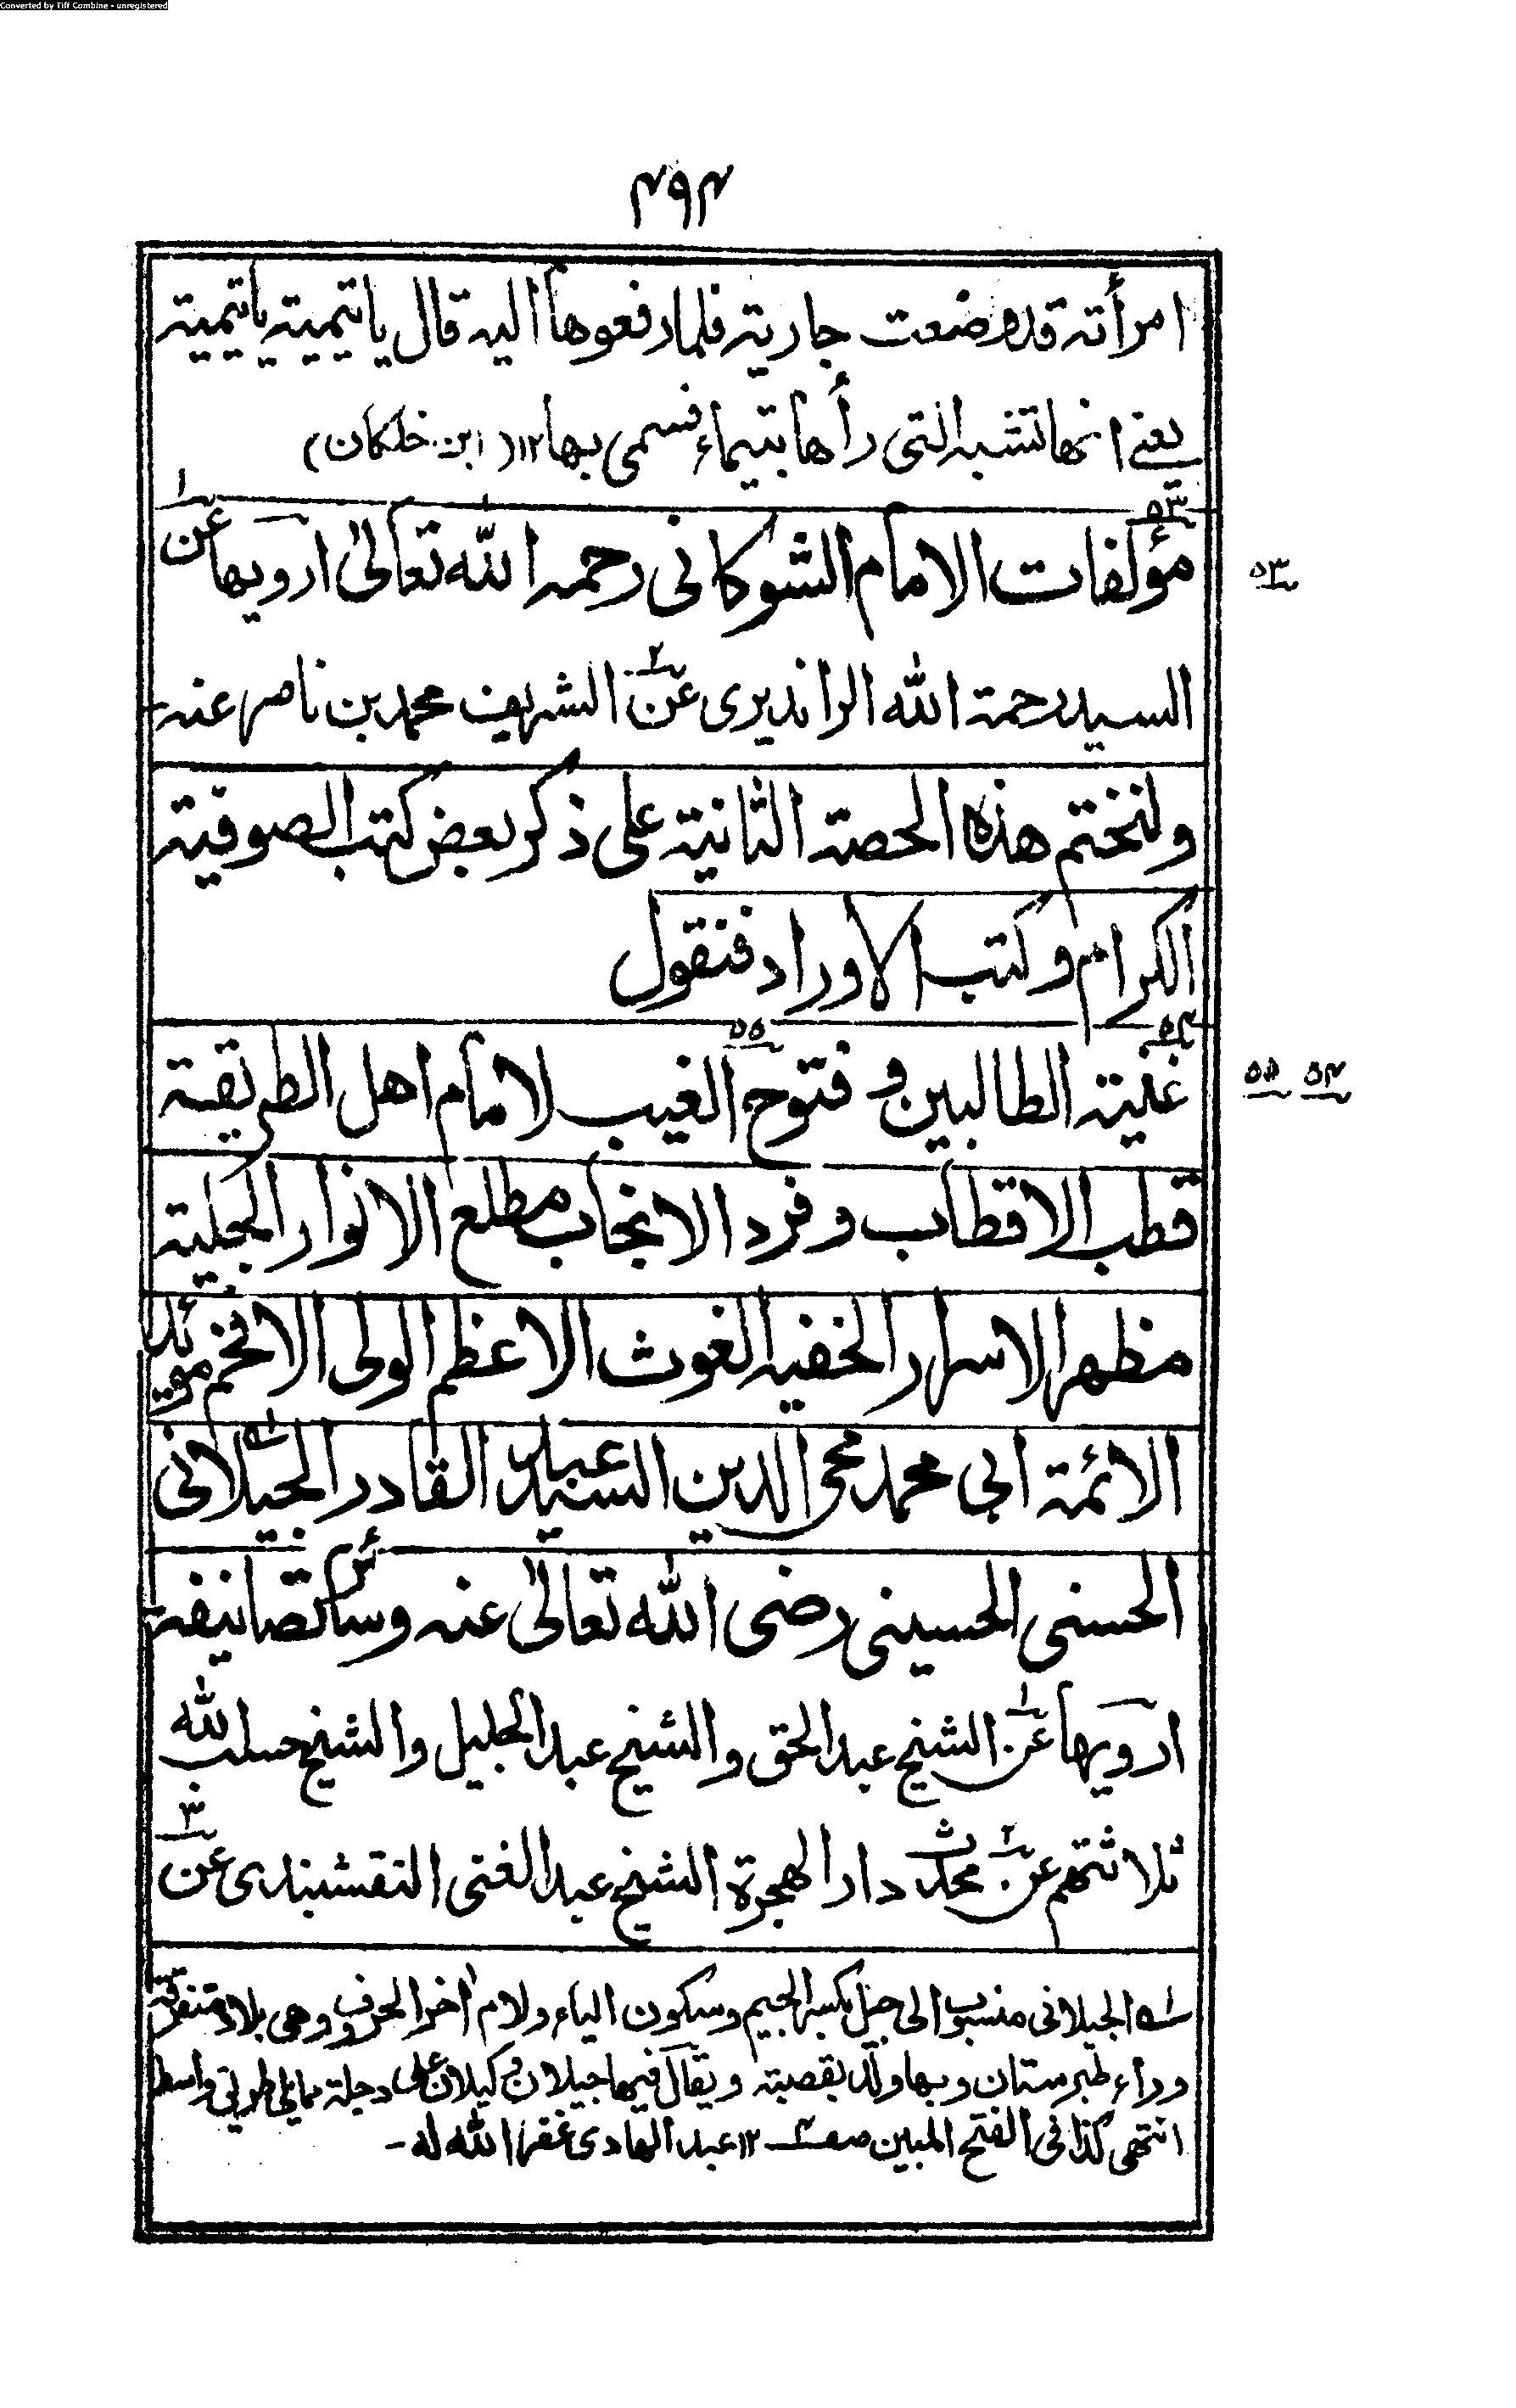 Converted by Tiff Combine - unregistered
۴۹۴
امرأته قد وضعت جارية فلما رفعوها اليه قال يا تيمية يا تيمية
يعني انها تشبه التي رأها بتيماء فسمى بها ۱۲ (ابن خلكان)
۵۳
مؤلفات الامام الشوكانى رحمه الله تعالىٰ ارويها عن ۱
۵۳
السيد رحمة الله الرانديرى عن ۲ الشريف محمد بن ناصر عنه
ولنختم هذه الحصة الثانية على ذكر بعض كتب الصوفية
الكرام وكتب الاوراد فنقول
۵۴ ۵۵
غنية الطالبين و فتوح الغيب لامام اهل الطريقة
۵۴ ۵۵
قطب الاقطاب وفرد الانجاب مطلع الانوار الجلية
مظهر الاسرار الخفيه الغوث الاعظم الولى الافخم مويد
الائمة ابي محمد محى الدين السيد عبد القادر الجيلانى ۱ه
الحسنى الحسينى رضى الله تعالىٰ عنه وسائر تصانيفه
ارويها عن ۱ الشيخ عبد الحق والشيخ عبد الجليل والشيخ حسب الله
ثلاثتهم عن ۲ محدث دار الهجرة الشيخ عبد الغنى النقشبندى عن ۳
۱ه الجيلانى منسوب الى جيل بكسر الجيم وسكون الياء ولام اٰخر الحروف وهى بلاد متفرقة
وراء طبرستان وبها ولد بقصبة ويقال فيها جيلان وكيلان على دجلة مما يلى طريق واسط
انتهى كذا فى الفتح المبين صـ۴ ۱۲ عبد الهادى غفر الله له -